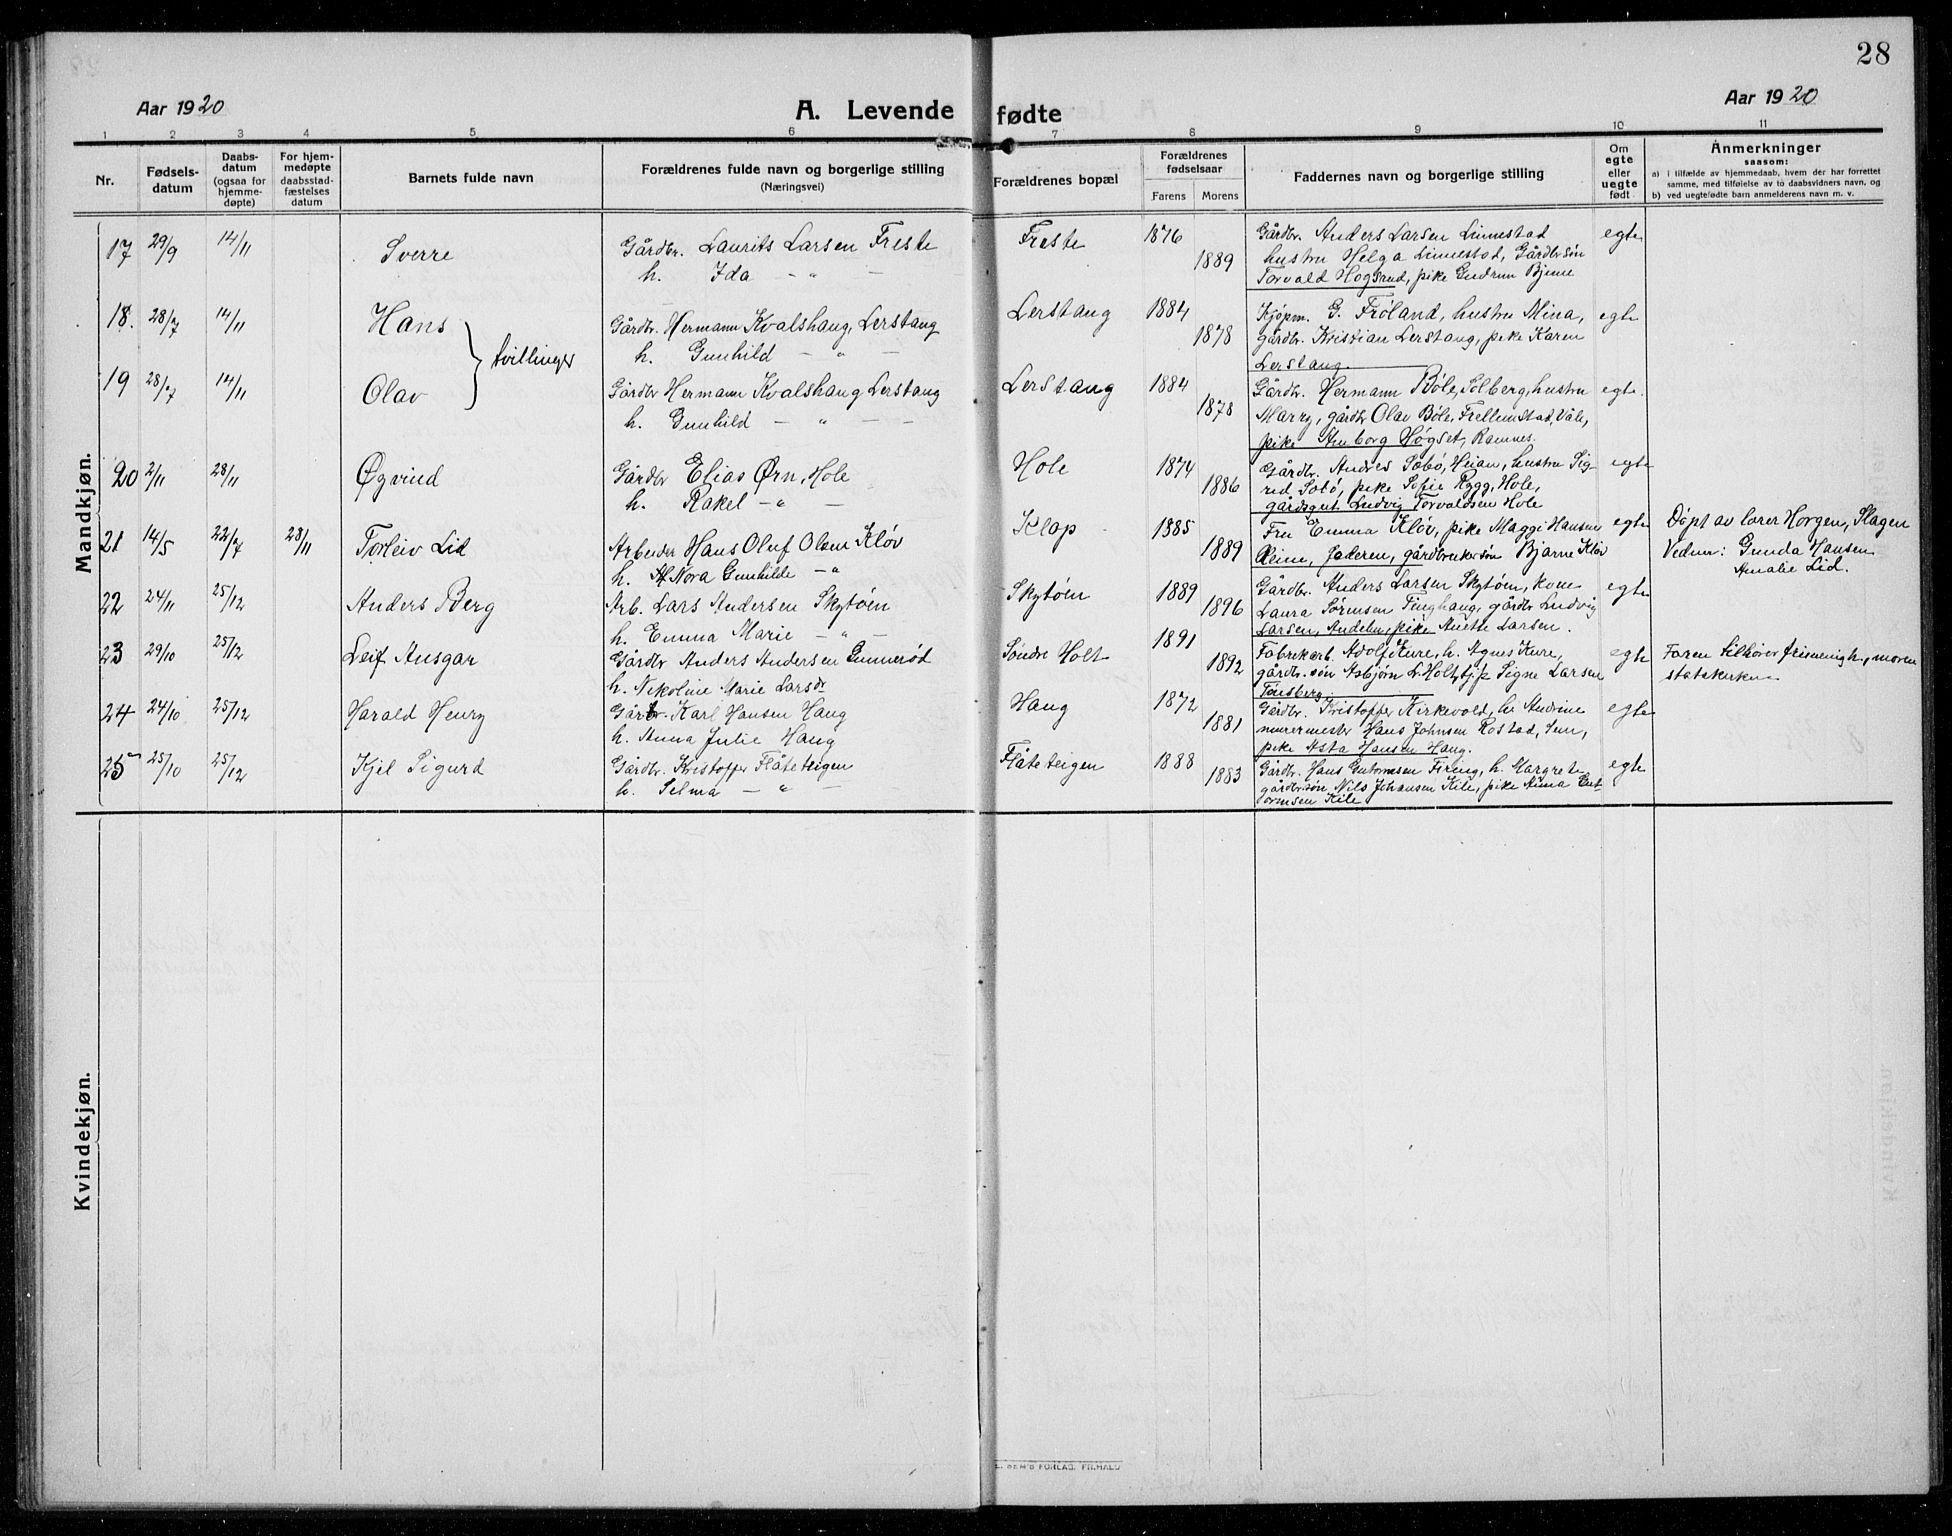 28
Aar 1920
A. Levende fødte
Aar 1920
1 2 3 4 5 6 7 8 9 10 11
Nr.
Fødsels-
datum
Daabs-
datum
(ogsaa for
hjemme-
døpte)
For hjem-
medøpte
daabsstad-
fæstelses
datum
Barnets fulde navn
Forældrenes fulde navn og borgerlige stilling
(Næringsvei)
Forældrenes bopæl
Forældrenes
fødselsaar
Farens Morens
Faddernes navn og borgerlige stilling
Om
egte
eller
uegte
født
Anmerkninger
saasom:
a) i tilfælde av hjemmedaab, hvem der har forrettet
samme, med tilføielse av to daabsvidners navn, og
b) ved uegtefødte barn anmelderens navn m. v.
Mandkjøn.
17 29/9 14/11 Sverre Gårdbr. Laurits Larsen Freste Freste 1876 Gårdbr. Anders Larsen Linnestad egte
h. Ida - " - 1889 hustru Helga Linnestad, Gårdbrsøn
Torvald Hogsrud, pike Gudrun Bjune
18. 28/7 14/11 Hans Gårdbr. Hermann Kvalshaug, Lerstang Lerstang 1884 Kjøpm. G. Frøland, hustru Mina, egte
tvillinger
h. Gunhild - " - 1878 gårdbr. Kristian Lerstang, pike Karen
Lerstang.
19 28/7 14/11 Olav Gårdbr Hermann Kvalshaug Lerstang Lerstang 1884 Gårdbr. Hermann Bøle, Solberg, hustru egte.
h. Gunhild - " - 1878 Marry, gårdbr Olav Bøle, Frellumstad, Våle,
pike Anborg Høgset, Ramnes.
20 2/11 28/11 Øyvind Gårdbr Elias Ørn, Hole Hole 1874 Gårdbr. Andres Sæbø, Heian, hustru Sig- egte
h. Rakel - " - 1886 rid Sæbø, pike Sofie Rygg, Hole,
gårdsgut Ludvig Torvaldsen Hole
21 14/5 22/7 28/11 Torleiv Lid Arbeider Hans Oluf Olsen Kløv Klop 1885 Fru Emma Kløv, pike Maggi Hansen egte Døpt av lærer Horgen, Slagen
h. Nora Gunhilde - " 1889 Reine, faderen, gårdbrukersøn Bjarne Kløv Vidner: Gunda Hansen
Amalie Lid.
22 24/11 25/12 Anders Berg Arb. Lars Andersen Skytøm Skytøm 1889 Gårdbr. Anders Larsen Skytøm, kone egte
h. Emma Marie - " - 1896 Laura Sørensen Tinghaug, gårdbr Ludvig
Larsen, Andebu, pike Anette Larsen.
23 29/10 25/12 Leif Ansgar Gårdbr Anders Andersen Gunnerød Søndre Holt 1891 Fabrikarb. Adolf Kure, h. Agnes Kure, egte Faren tilhører frimenigh., moren
h. Nikoline Marie Larsdr 1892 gårdbr.søn Asbjørn L. Holt, tjp Signe Larsen statskirken
Tønsberg
24 24/10 25/12 Harald Henry Gårdbr. Karl Hansen Haug Haug 1872 Gårdbr. Kristoffer Kirkevold, h. Andrine egte
h. Anna Julie Haug 1881 murermester Hans Johnsen Rostad, Sem,
pike Asta Hansen Haug.
25 25/10 25/12 Kjel Sigurd Gårdbr. Kristoffer Flåteteigen Flåteteigen 1888 Gårdbr. Hans Guttormsen Firing, h. Margrete egte
h. Selma - " - 1883 gårdbr.søn Nils Johansen Kile, pike Anna Gut-
ormsen Kile
Kvindekjøn.